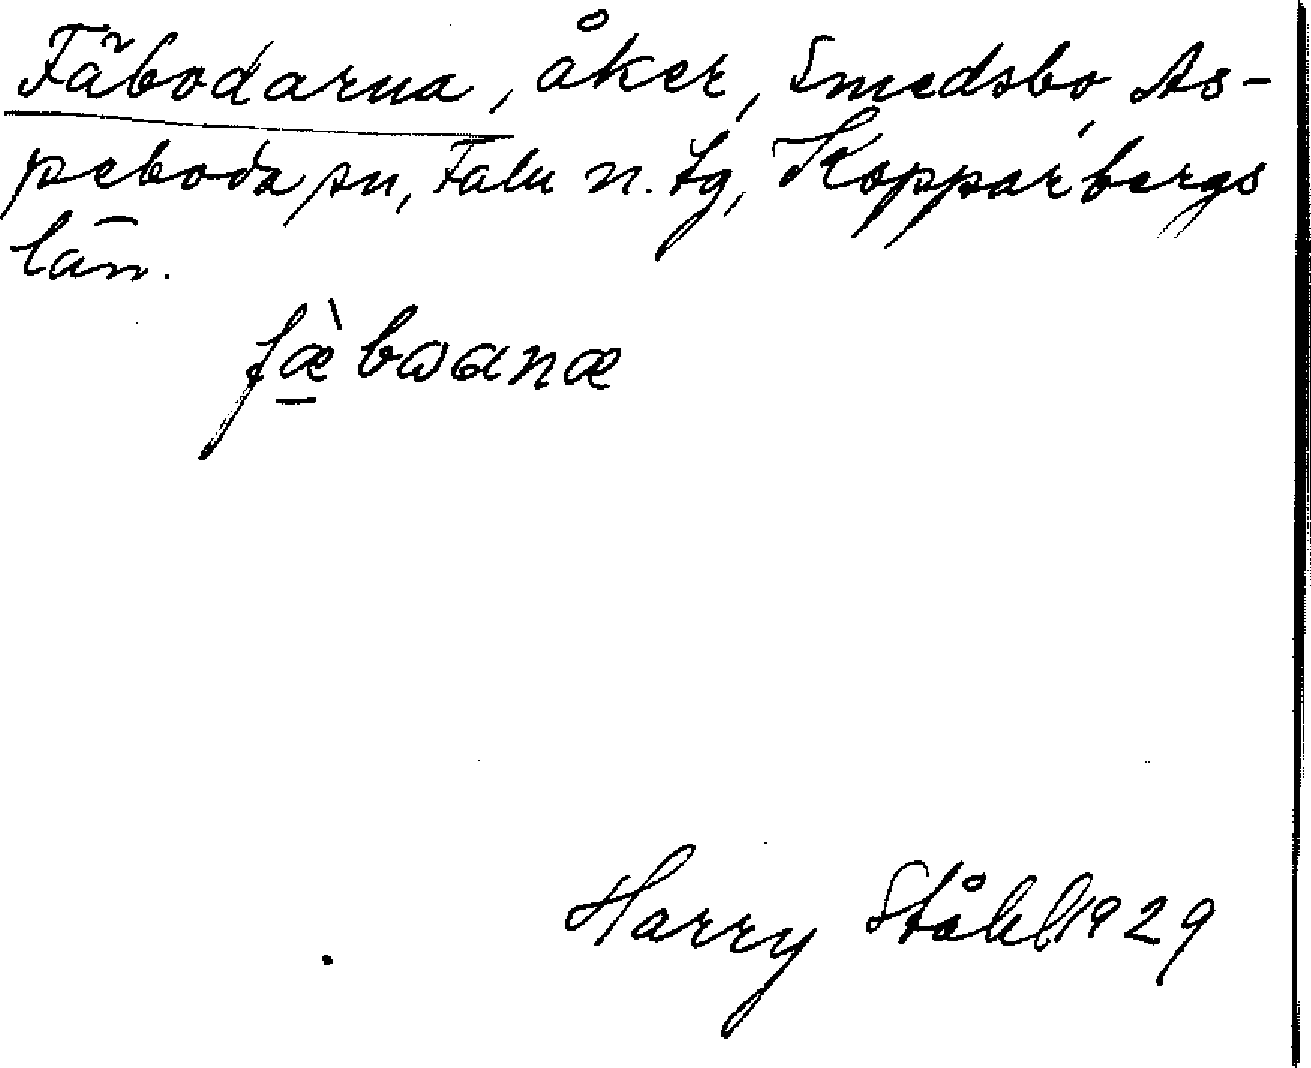 Fäbodarna, åker, Smedsbo, As-
peboda sn, Falu n. tg, Kopparbergs
län.
fæ̀bωαnæ
Harry Ståhl 1929